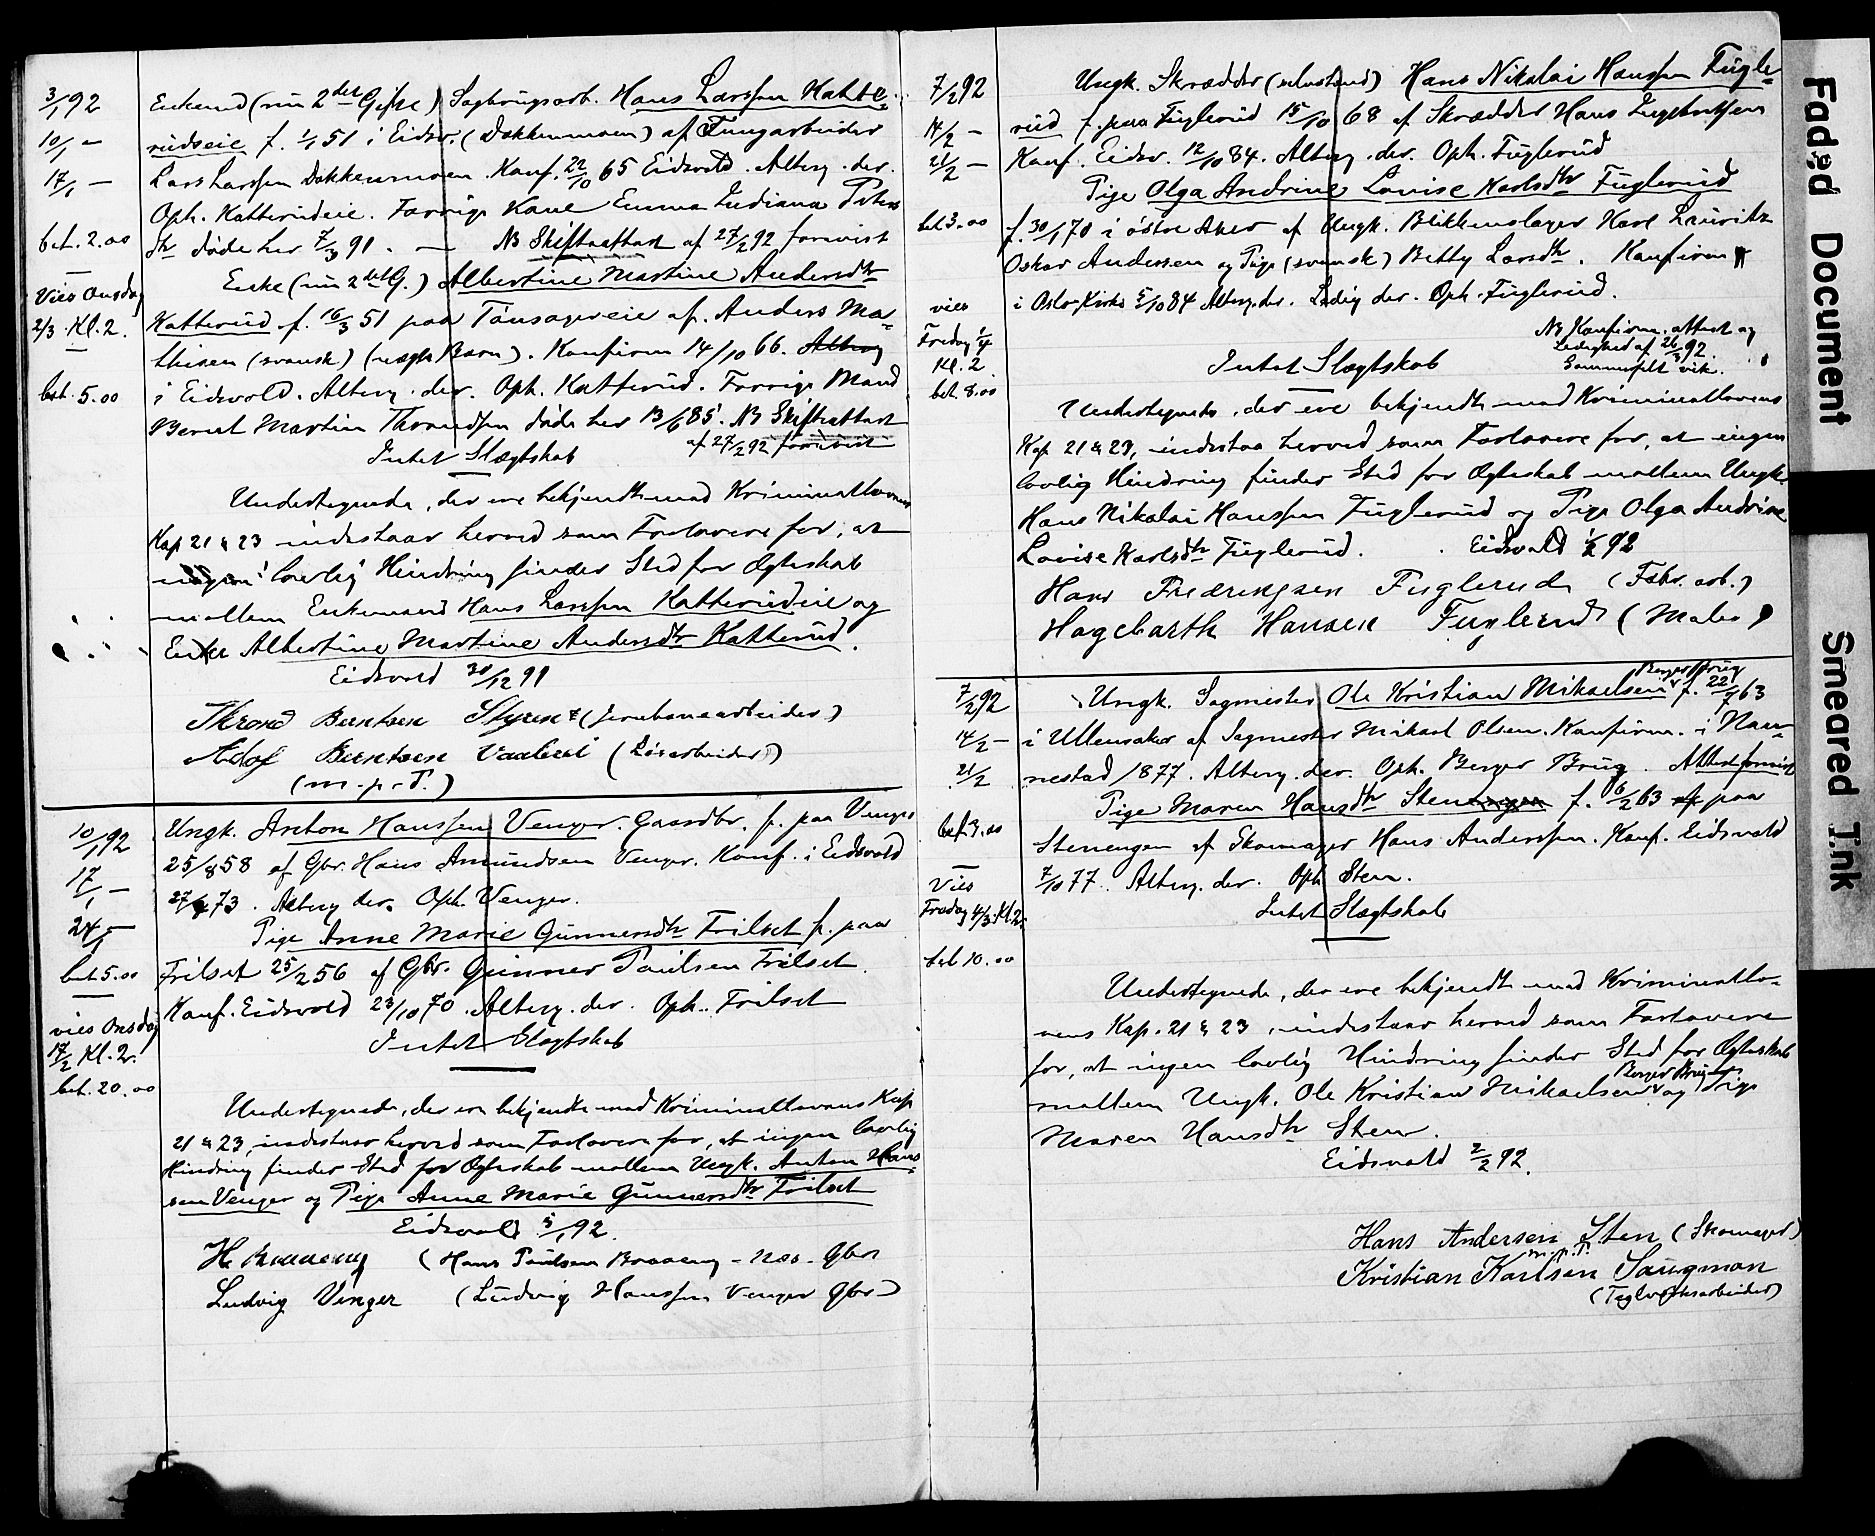 3/1 92
10/1 —
17/1 —
bet. 2.00
Vies Onsdag
2/3 Kl. 2.
bet. 5.00
Enkemd (nu 2det Gifte) Sagbrugsarb. Hans Larssen Katte-
rudseie f. 1/1 51 i Eidsv. (Dokkenmoen) af
Lars Larssen Dokkenmoen. Konf. 22/10 65 Eidsvold. Alterg. der.
Oph. Katterudeie. Forrige Kone Emma Indiana Peters
dtr døde her 7/3 91. — NB Skifteattest af 27/2 92 forevist
Enke (nu 2det G.) Albertine Martine Andersdtr
Katterud f. 16/3 51 paa af Anders Ma-
thisen (svensk) (uægte Barn). Konfirm 14/10 66.
i Eidsvold. Alterg. der. Oph. Katterud. Forrige Mand
Bernt Martin Throndsen døde her 13/6 85. NB Skifteattest
af 27/2 92 forevist
Intet Slægtskab
Undertegnede, der ere bekjendte med Kriminallovens
Kap 21 & 23 indestaar herved som Forlovere for, at
ingen lovlig Hindring finder Sted for Ægteskab
mellem Enkemand Hans Larssen Katterudeie og
Enke Albertine Martine Andersdtr Katterud.
Eidsvold 30/12 91
Thrond Berntsen Styren (Jernbanearbeider)
Adof Berntsen (Løsarbeider)
(m. p. P.)
10/1 92
17/1 —
24/1 —
bet 5.00
vies Onsdag
17/2 Kl. 2.
bet. 20.00
Ungk. Anton Hanssen Venger. Gaardbr. f. paa Venger
25/8 58 af Gbr. Hans Amundsen Venger. Konf. i Eidsvold
73. Alterg der. Oph. Venger.
Pige Anne Marie Gunnersdtr Frilset f. paa
Frilset 25/2 56 af Gbr. Gunner Paulsen Frilset.
Konf. Eidsvold 23/10 70. Alterg. der. Oph. Frilset
Intet Slægtskab
Undertegnede, der ere bekjendte med Kriminallovens Kap
21 & 23, indestaar herved som Forlovere for, at ingen lovlig
Hindring finder Sted for Ægteskab mellem Ungk. Anton Hans-
sen Venger og Pige Anne Marie Gunnersdtr Frilset
Eidsvold 5/1 92.
H. Braaeng (Hans Paulsen Braaeng - nor. Gbr)
Ludvig Venger (Ludvig Hanssen Venger Gbr)
7/2 92
14/2 —
21/2 —
bet 3.00
vies
Fredag 1/4
Kl. 2
bet. 8.00
Ungk. Skrædder (selvstænd) Hans Nikolai Hanssen Fugle-
rud f. paa Fuglerud 15/10 68 af Skrædder Hans Engebretsen
Konf. Eidsv. 12/10 84. Alterg. der. Oph. Fuglerud
Pige Olga Andrine Lovise Karlsdtr Fuglerud
f. 30/1 70 i østre Aker af Ungk. Blikkenslager Karl Lauritz
Oskar Andersen og Pige (svensk) Betty Larsdtr. Konfirm
i Oslo Kirke 5/10 84 Alterg. der. Ledig der. Oph. Fuglerud.
NB Konfirm. attest og
Ledighed af 26/3 92.
Sommerfelt vik.
Intet Slægtskab
Undertegnede, der ere bekjendte med Kriminallovens
Kap 21 & 23, indestaa herved som Forlovere for, at ingen
lovlig Hindring finder Sted for Ægteskab mellem Ungk.
Hans Nikolai Hanssen Fuglerud og Pige Olga Andrine
Lovise Karlsdtr Fuglerud. Eidsvold 1/2 92
Hans Fredriksen Fuglerud (Fabr. arb.)
Hagebarth Hansen Fuglerud (Maler)
7/2 92
14/2 —
21/2
bet. 3.00
Vies
Fredag 4/3 Kl 2.
bet 10.00
Berger Brug
Ungk. Sagmester Ole Kristian Mikaelsen f. 22/7 63
i Ullensaker af Sagmester Mikael Olsen. Konfirm. i Nan-
nestad 1877. Alterg. der. Oph. Berger Brug. Attest forevist
Pige Maren Hansdtr Stenengen f. 6/2 63 af paa
Stenengen af Skomager Hans Anderssen. Konf. Eidsvold
7/10 77. Alterg. der. Oph Sten.
Intet Slægtskab
Undertegnede, der ere bekjendt med Kriminallo-
vens Kap. 21 & 23, indestaar herved som Forlovere
for, at ingen lovlig Hindring finder Sted for Ægteskab
Berger Brug
mellem Ungk. Ole Kristian Mikaelsen og Pige
Maren Hansdtr Sten.
Eidsvold 2/2 92.
Hans Andersen Sten (Skomager)
m. p. P.
Kristian Karlsen Saugmon
(Teglverksarbeider)
Faded Document
Smeared Ink